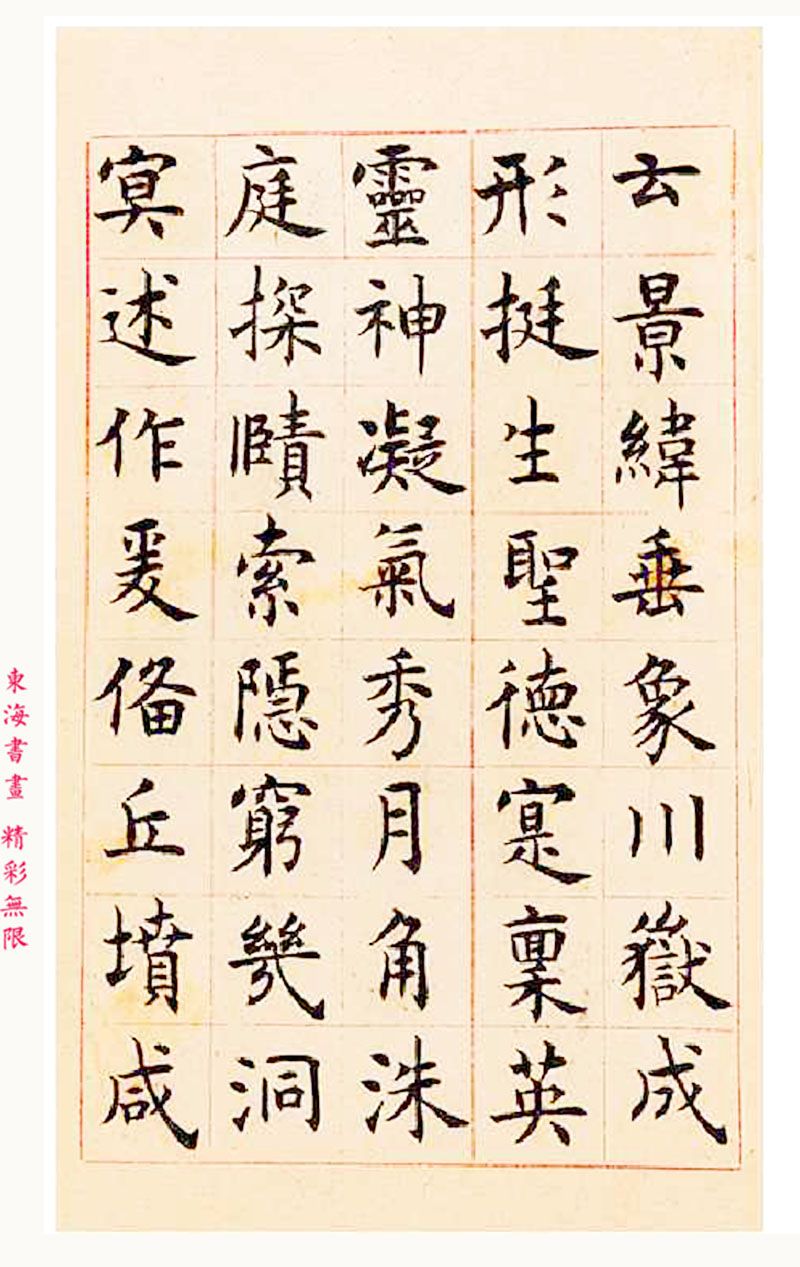 云景緯垂象川嶽成
形挺生聖徳寔稟英
靈神凝氣秀月角洙
庭探賾索隠窮幾洞
㝠述作爰俻丘墳咸
東海書畫 精彩無限